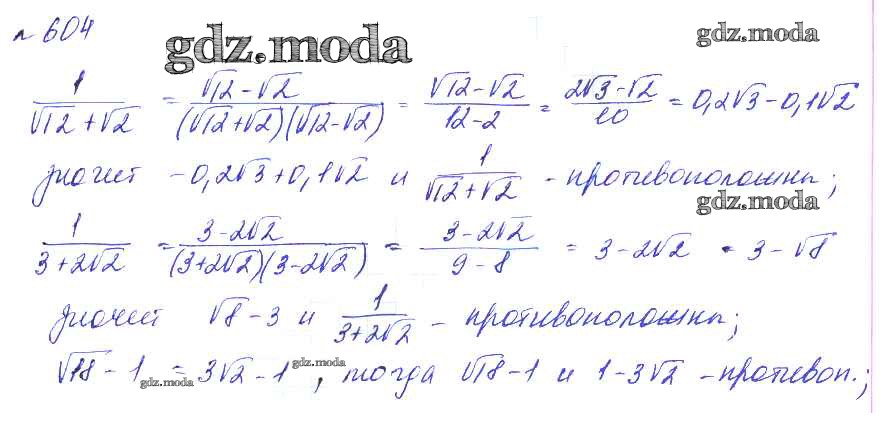 № 604
gdz.moda
gdz.moda
1/(√12+√2) = (√12-√2)/((√12+√2)(√12-√2)) = (√12-√2)/(12-2) = (2√3-√2)/10 = 0,2√3-0,1√2
значит -0,2√3+0,1√2 и 1/(√12+√2) - противоположны;
gdz.moda
1/(3+2√2) = (3-2√2)/((3+2√2)(3-2√2)) = (3-2√2)/(9-8) = 3-2√2 = 3-√8
значит √8-3 и 1/(3+2√2) - противоположны;
√18-1 = 3√2-1, тогда √18-1 и 1-3√2 - противоп.;
gdz.moda
gdz.moda